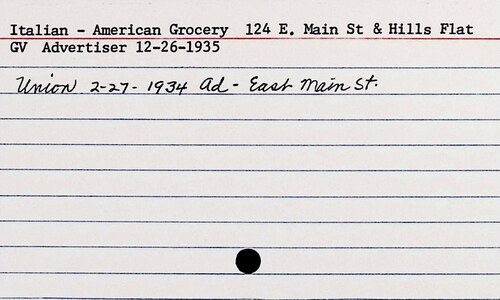 Italian - American Grocery 124 E. Main St & Hills Flat
GV Advertiser 12-26-1935
Union 2-27-1934 Ad - East Main St.